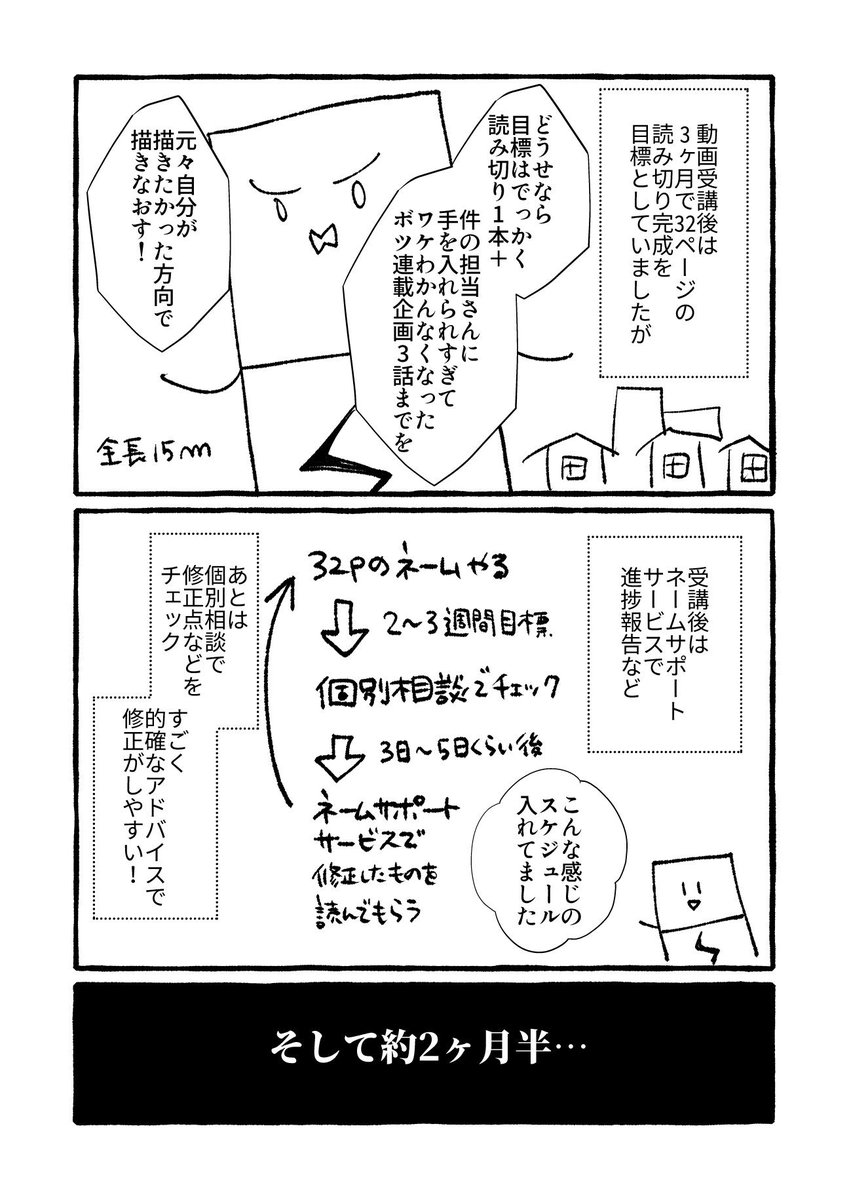 動画受講後は
3ヶ月で32ページの
読み切り完成を
目標としていましたが
どうせなら
目標はでっかく
読み切り1本＋
件の担当さんに
手を入れられすぎて
ワケわかんなくなった
ボツ連載企画3話までを
元々自分が
描きたかった方向で
描きなおす！
全長15m
受講後は
ネームサポート
サービスで
進捗報告など
32Pのネームやる
2〜3週間目標
個別相談でチェック
3日〜5日くらい後
ネームサポート
サービスで
修正したものを
読んでもらう
こんな感じの
スケジュール
入れてました
あとは
個別相談で
修正点などを
チェック
すごく
的確なアドバイスで
修正がしやすい！
そして約2ヶ月半…